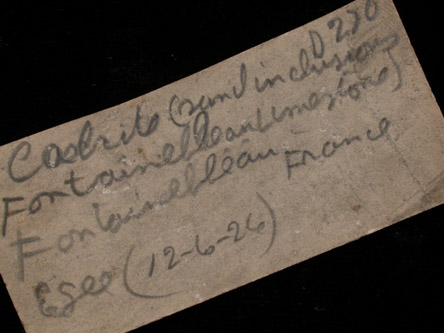 D 230
Calcite (sand inclusions
Fontainebleau Limestone)
Fontainebleau France
Egee (12-6-26)